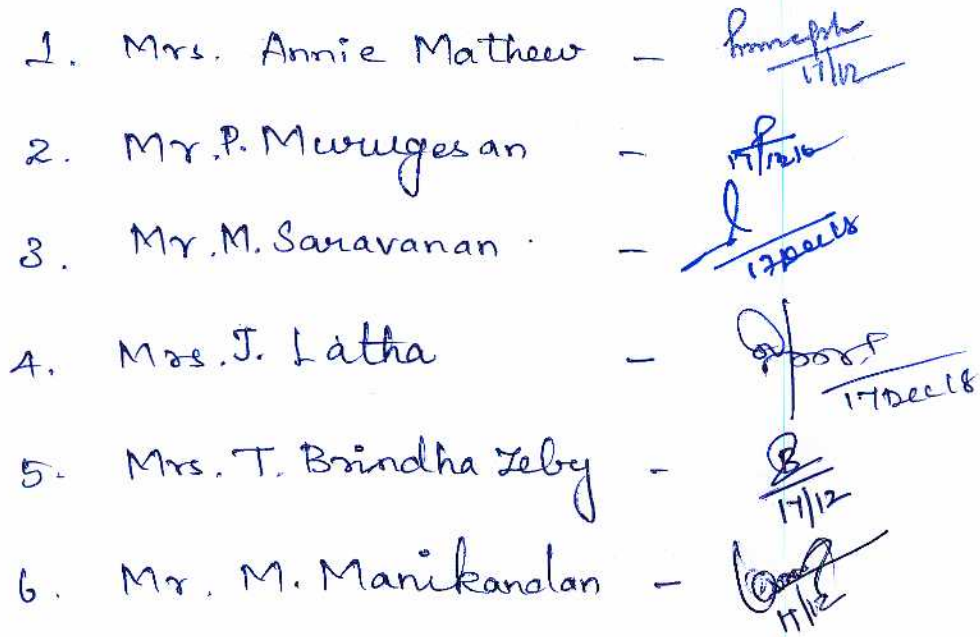 1. Mrs. Annie Mathew -
17/12
2. Mr. P. Murugesan -
17/12/18
3. Mr. M. Saravanan -
17 Dec 18
4. Mrs. J. Latha -
17 Dec 18
5. Mrs. T. Brindha Zeby -
17/12
6. Mr. M. Manikandan -
17/12